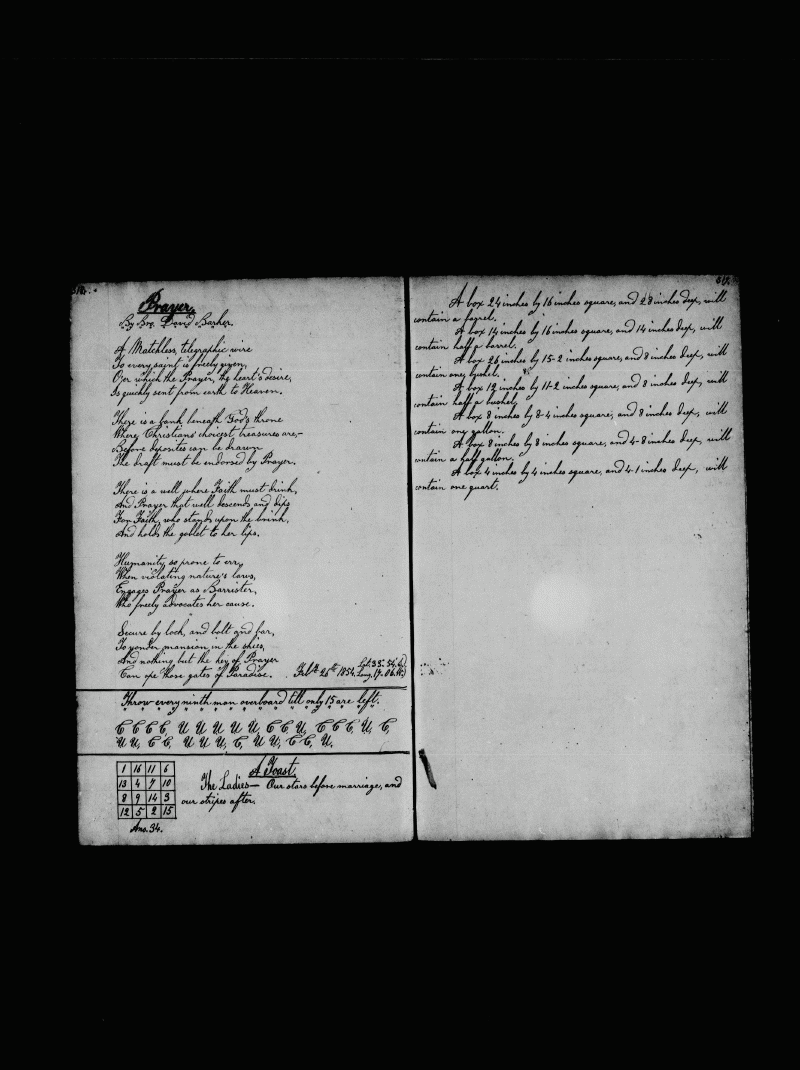 Prayer.
By Bro. David Barker.
A Matchless, telegraphic wire
To every saint is freely given,
O'er which the Prayer, the heart's desire,
Is quickly sent from earth to Heaven.
There is a bank beneath God's throne
Where Christians' choicest treasures are,-
Before deposites can be drawn
The draft must be endorsed by Prayer.
There is a well where Faith must drink,
And Prayer that well descends and dips
For Faith, who stands upon the brink,
And holds the goblet to her lips.
Humanity, so prone to err,
When violating nature's laws,
Engages Prayer as Barrister,
Who freely advocates her cause.
Secure by lock, and bolt and bar,
To yonder mansion in the skies,
And nothing but the key of Prayer
Can ope those gates of Paradise. Feb. 25th 1854.
Throw every ninth man overboard till only 15 are left.
C C C C, U U U U U, C C U, C C C, U, C,
U U, C C, U U U, C, U U, C C, U.
1 16 11 6
13 4 7 10
8 9 14 3
12 5 2 15
Ans. 34.
A Toast.
The Ladies— Our stars before marriage, and
our stripes after.
A box 24 inches by 16 inches square, and 28 inches deep, will
contain a barrel.
A box 14 inches by 16 inches square, and 14 inches deep, will
contain half a barrel.
A box 26 inches by 15-2 inches square, and 8 inches deep, will
contain one bushel.
A box 12 inches by 11-2 inches square, and 8 inches deep, will
contain half a bushel.
A box 8 inches by 8-4 inches square, and 8 inches deep, will
contain one gallon.
A box 8 inches by 8 inches square, and 4-8 inches deep, will
contain a half gallon.
A box 4 inches by 4 inches square, and 4-1 inches deep, will
contain one quart.